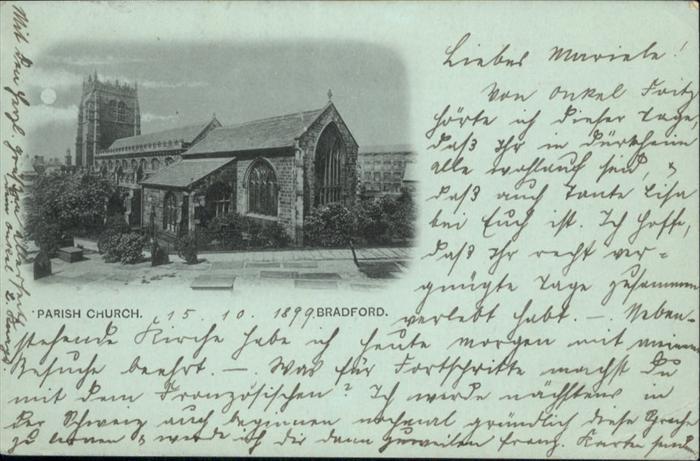 Liebes Mariele!
Von Onkel Fritz
hörte ich dieser Tage
daß Ihr in Dürkheim
alle wohlauf seid, &
daß auch Tante Lisa
bei Euch ist. Ich hoffe,
daß Ihr recht ver-
gnügte Tage zusammen
verlebt habt. —. Neben-
PARISH CHURCH. 15. 10. 1899 BRADFORD.
stehende Kirche habe ich heute morgen mit meinem
Besuche beehrt. —. Was für Fortschritte machst Du
mit dem Französischen? Ich werde nächstens in
der Schweiz auch beginnen nochmal gründlich diese Sprache
zu lernen & werde ich dir dann zuweilen franz. Karten
Mit den herzl. Grüßen
Dein Onkel